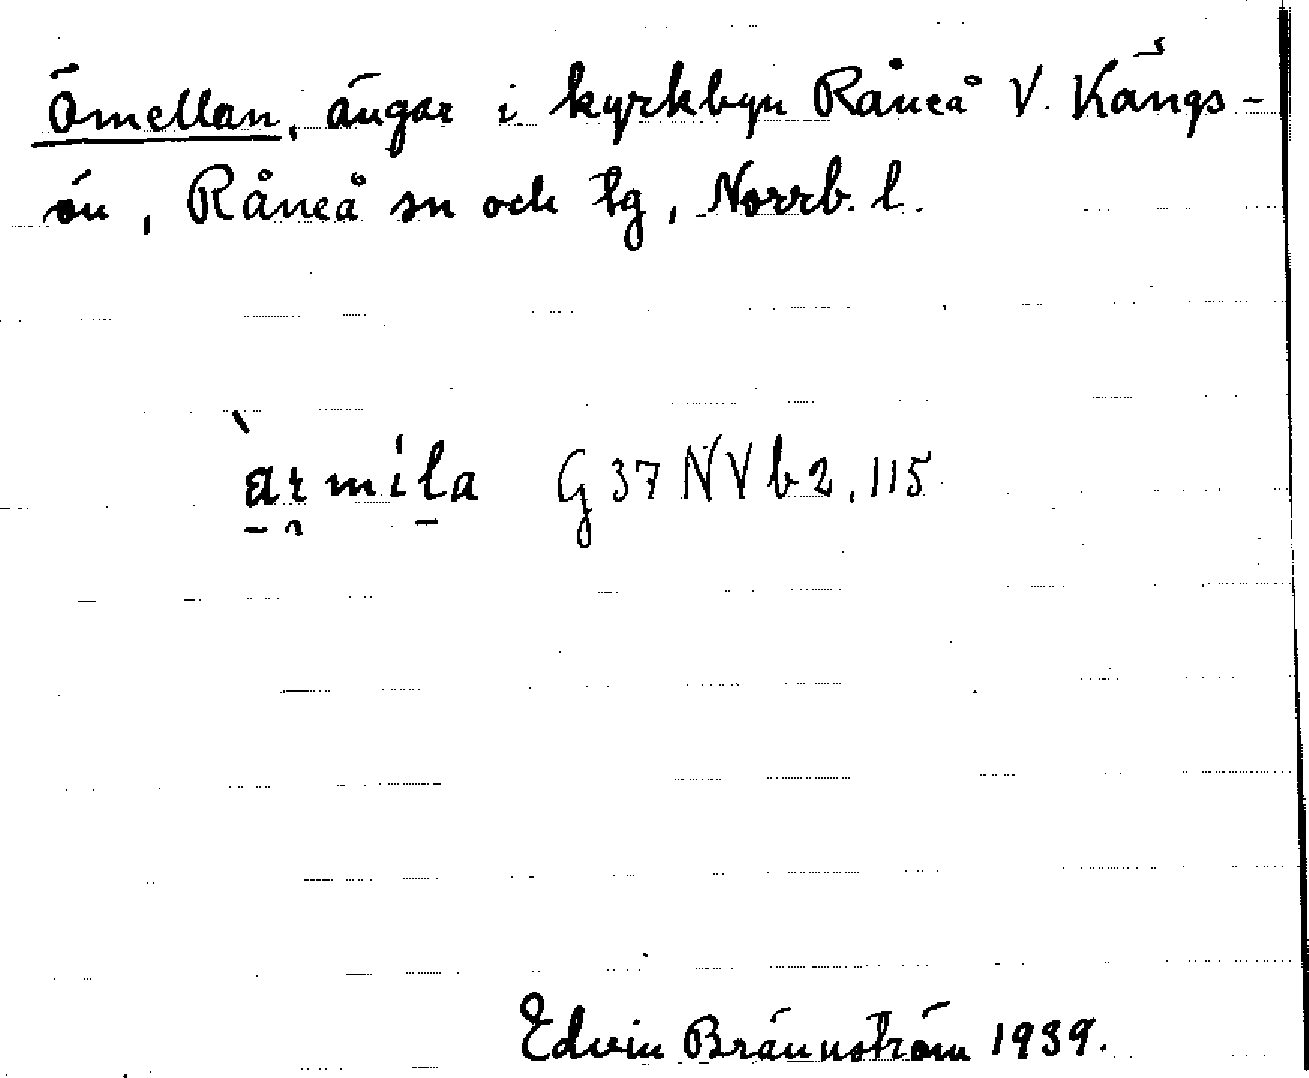 Ömellan, ängar i kyrkbyn Råneå V. Kängs-
ön, Råneå sn och tg, Norrb. l.
àrmíla G37 NVb2, 115
Edvin Brännström 1939.